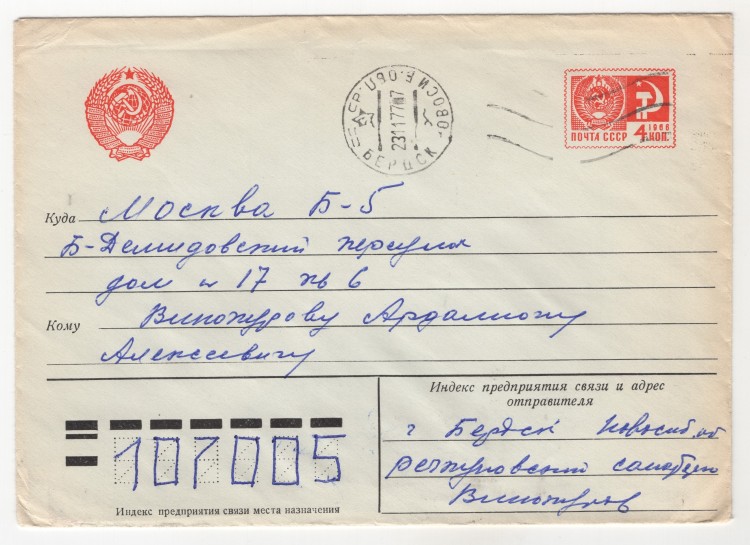 БЕРДСК НОВОСИБ. ОБЛ.
231177
ПОЧТА СССР
1966
4 КОП.
Куда Москва Б-5
Б-Демидовский переулок
дом № 17 кв 6
Кому Винокурову Ардалиону
Алексеевичу
Индекс предприятия связи и адрес
отправителя
г Бердск Новосиб. об
Винокуров
107005
Индекс предприятия связи места назначения